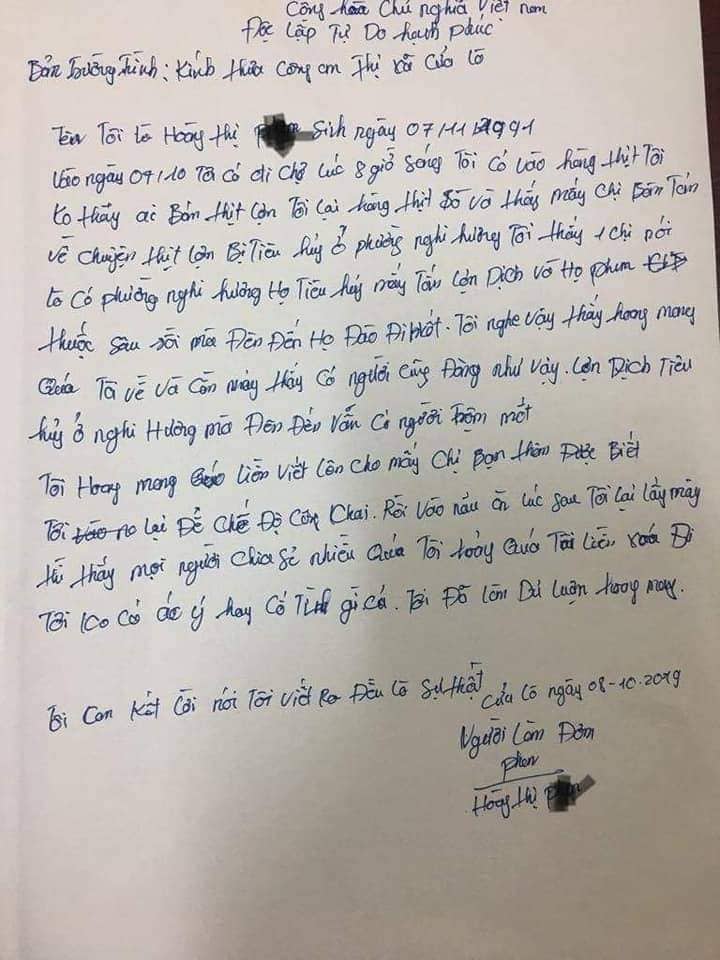 Công hòa Chủ nghĩa Việt nam
Độc Lập Tự Do hạnh phúc
Bản Trường Trình: Kính thưa Công an Thị xã Cửa lò
Tên Tôi là Hoàng Thị sinh ngày 07/11/1991
Vào ngày 07/10 Tôi có đi chợ lúc 8 giờ sáng Tôi có vào hàng thịt Tôi
ko thấy ai Bán thịt lợn Tôi lại hàng thịt Bò và thấy mấy chị Bán Tán
về chuyện thịt lợn Bị Tiêu hủy ở phường nghi hương Tôi thấy 1 chị nói
là có phường nghi hương Họ Tiêu hủy mấy Tấn lợn Dịch và Họ phun
thuốc sâu rồi mà Đên Đến Họ Đào Đi mất. Tôi nghe vậy thấy hoang mang
quá Tôi về và cầm máy thấy có người cũng Đăng như vậy. lợn Dịch Tiêu
hủy ở nghi Hương mà Đên Đến vẫn có người trộm mất
Tôi Hoang mang liền viết lên cho mấy chị Bạn thân Được Biết
Tôi lại Để chế Độ công khai. Rồi vào nấu ăn lúc sau Tôi lại lấy máy
thì thấy mọi người chia sẻ nhiều quá Tôi quá Tôi liền xoá Đi
Tôi ko có ác ý hay cố Tình gì cả. Tôi Đã làm Dư luận hoang mang.
Tôi Cam kết lời nói Tôi viết Ra Đều là sự thật
Cửa lò ngày 08-10.2019
Người làm Đơn
Hoàng thị